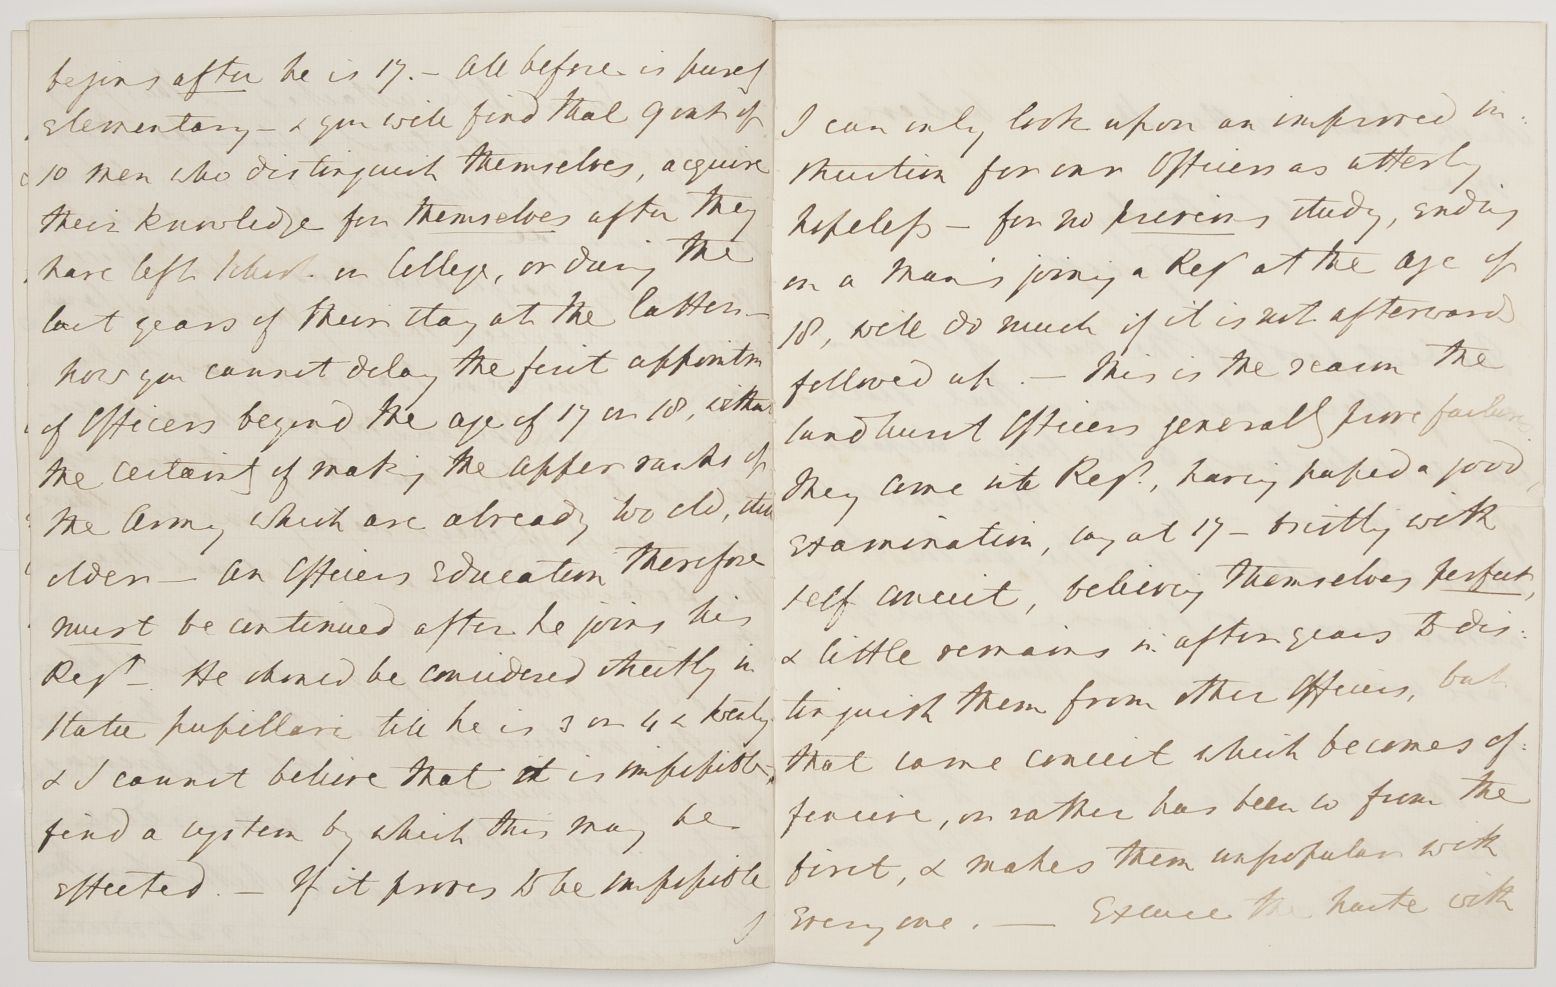 begins after he is 17. – All before is purely
elementary – & you will find that 9 out of
10 men who distinguish themselves, acquire
their knowledge for themselves after they
have left School or College, or during the
last years of their stay at the latter –
Now you cannot delay the first appointm
of Officers beyond the age of 17 or 18, without
the certainty of making the upper ranks of
the Army which are already too old, still
older – An Officers Education therefore
must be continued after he joins his
Regt – He should be considered strictly in
statu pupillari till he is 3 or 4 & twenty
& I cannot believe that it is impossible to
find a system by which this may be
effected. – If it proves to be impossible
I
I can only look upon an improved in:
struction for our Officers as utterly
hopeless – for no previous study, ending
on a Man's joining a Regt at the age of
18, will do much if it is not afterwards
followed up. – This is the reason the
Sandhurst Officers generally prove failures
They come into Regts, having passed a good
examination, say at 17 – bristling with
self conceit, believing themselves perfect,
& little remains in after years to dis:
tinguish them from other Officers, but
that same conceit which becomes of:
fensive, or rather has been so from the
first, & makes them unpopular with
every one. — Excuse the haste with